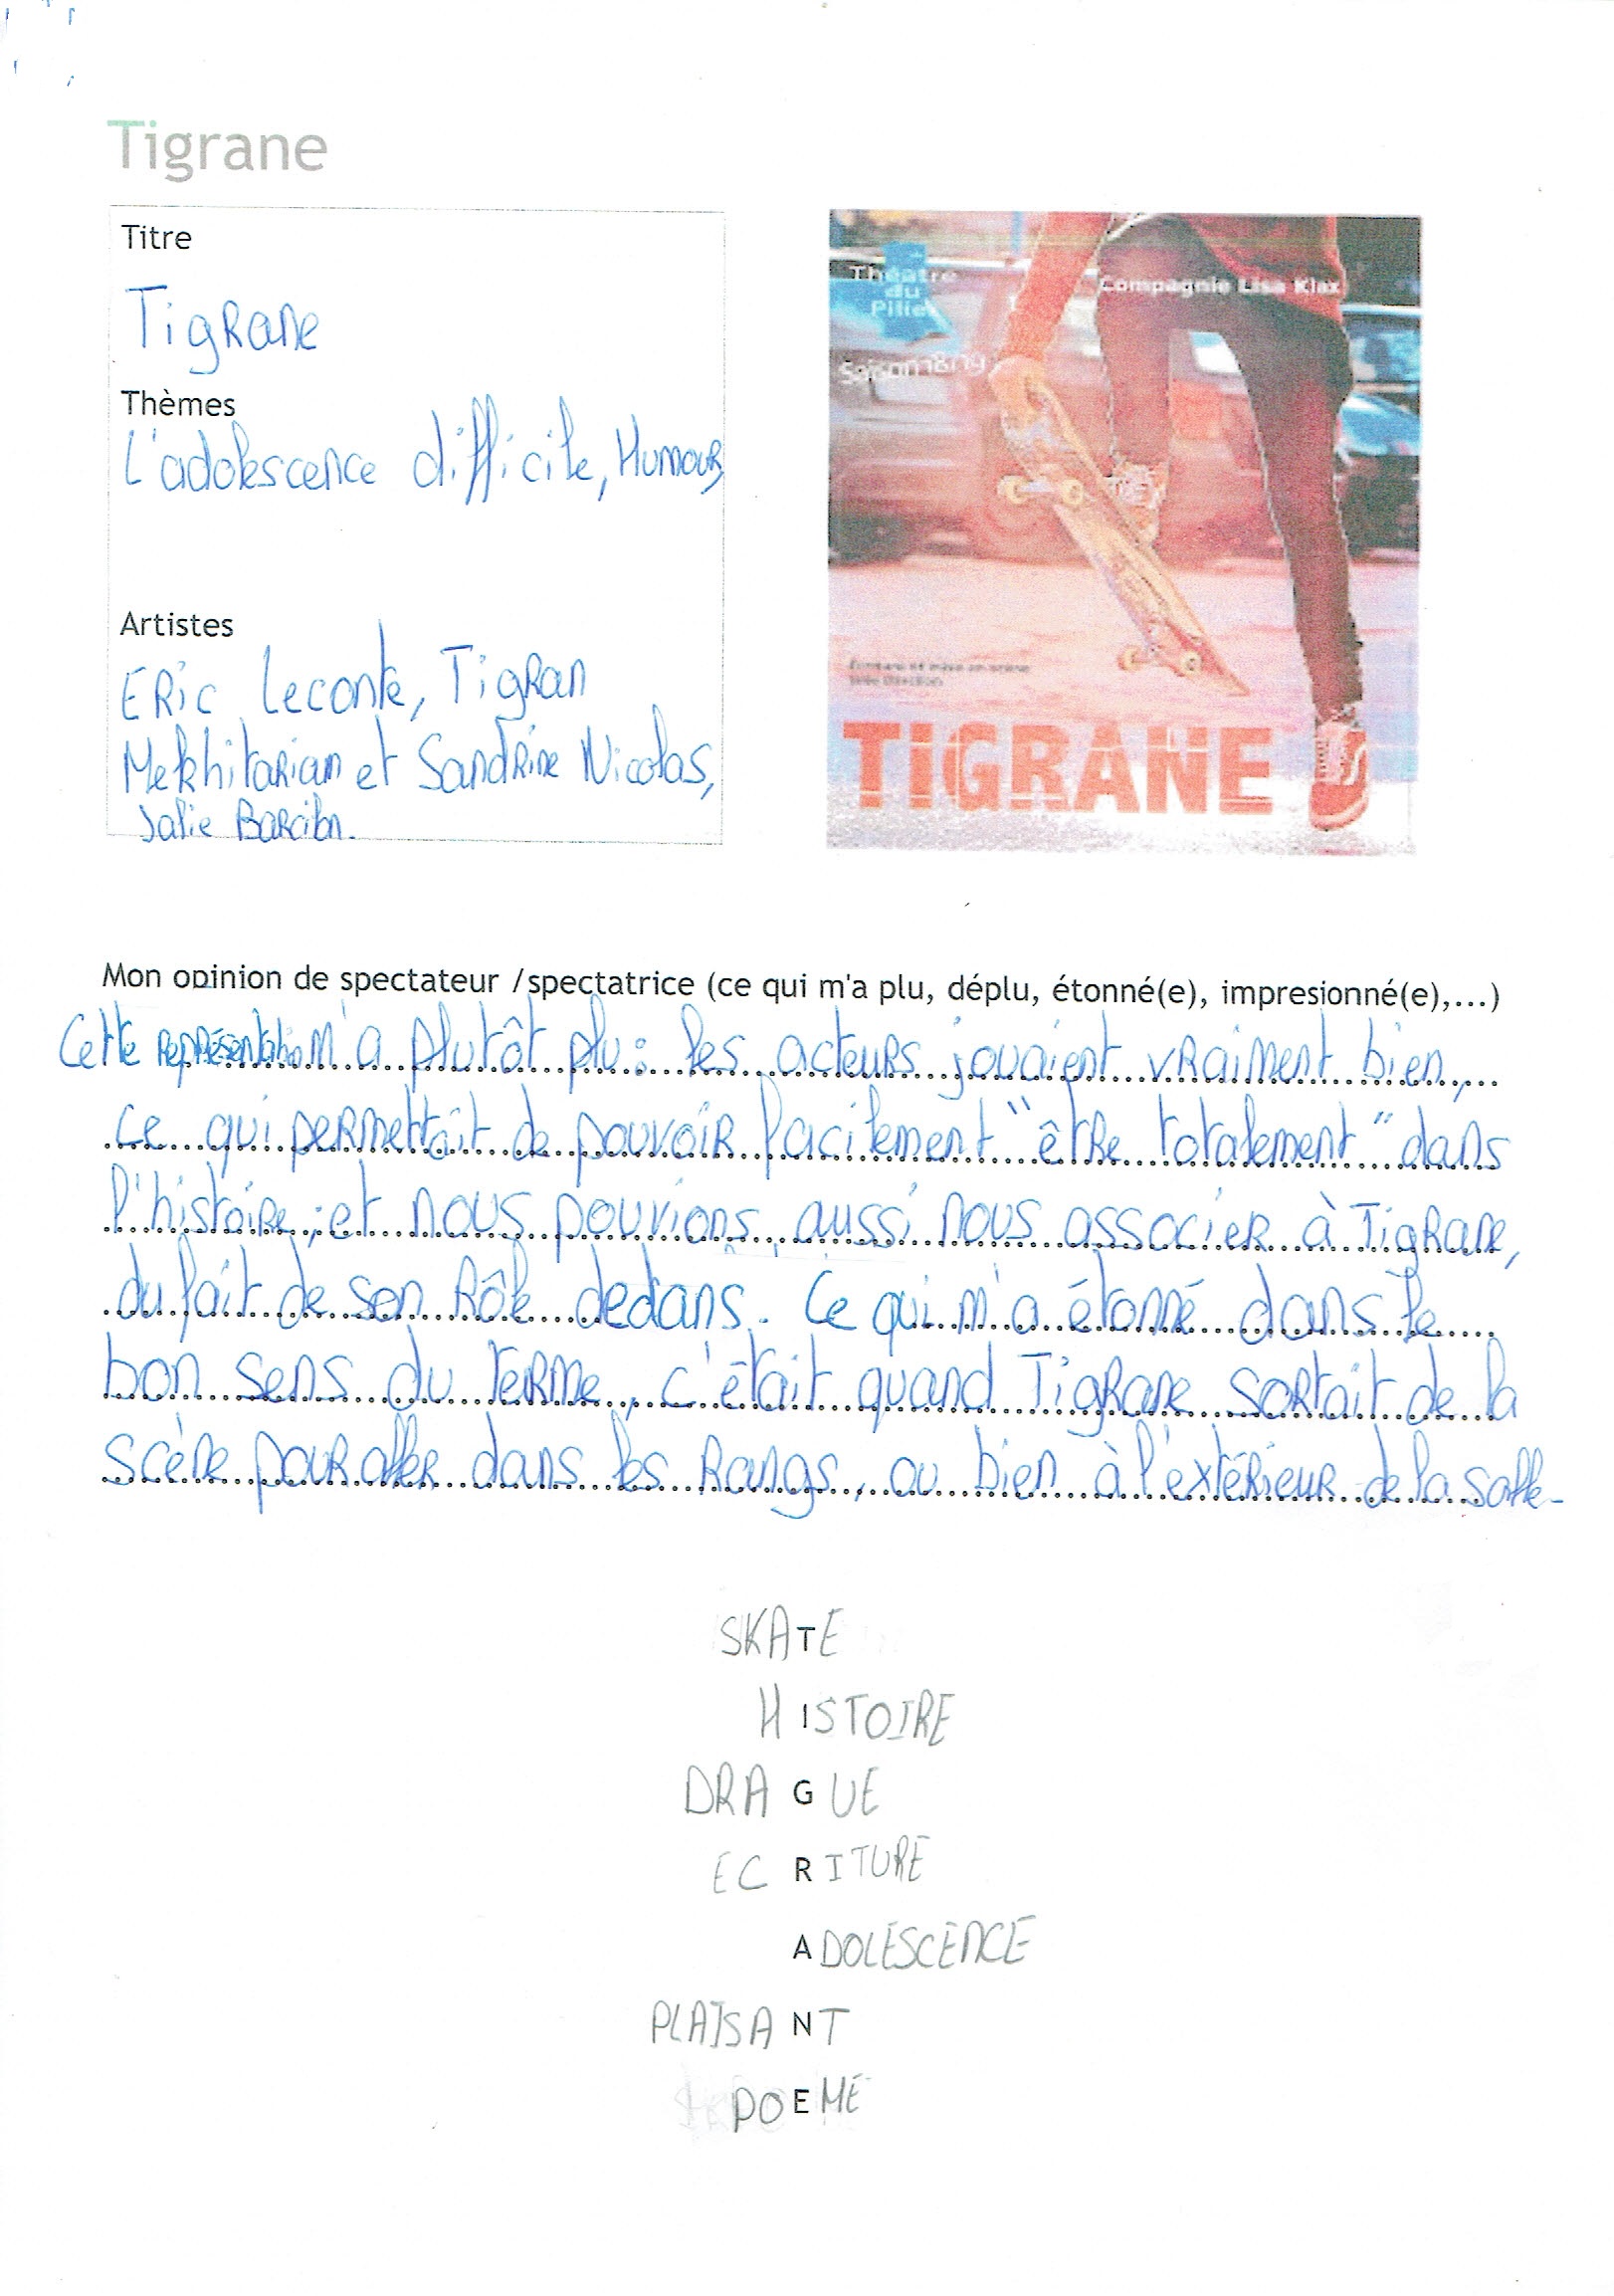 Tigrane
Titre
Tigrane
Thèmes
L'adolescence difficile, Humour,
Artistes
Eric Leconte, Tigran
Mekhitarian et Sandrine Nicolas,
Jalie Barcilon.
Théâtre
du
Pilier
Compagnie Lisa Klax
Saison18&19
Écriture et mise en scène
TIGRANE
Mon opinion de spectateur /spectatrice (ce qui m'a plu, déplu, étonné(e), impresionné(e),...)
Cette représentation M'a plutôt plu : les acteurs jouaient vraiment bien,
ce qui permettait de pouvoir facilement "être totalement" dans
l'histoire ; et nous pouvions aussi nous associer à Tigrane,
du fait de son rôle dedans. Ce qui m'a étonné dans le
bon sens du terme, c'était quand Tigrane sortait de la
scène pour aller dans les rangs, ou bien à l'extérieur de la salle.
SKATE
HISTOIRE
DRAGUE
ECRITURE
ADOLESCENCE
PLAISANT
POEME